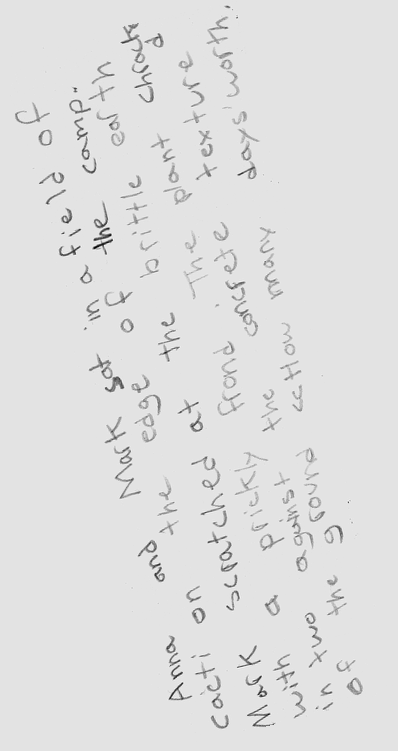 Anna and Mark sat in a field of
cacti on the edge of the camp."
Mark scratched at the brittle earth
with a prickly frond The plant
in two against the concrete texture
of the ground many days' worth.